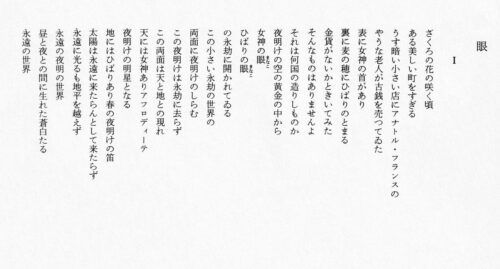 眼
I
ざくろの花の咲く頃
ある美しい町をすぎる
うす暗い小さい店にアナトル・フランスの
やうな老人が古銭を売つてゐた
表に女神の首があり
裏に麦の穂にひばりのとまる
金貨がないかときいてみた
そんなものはありませんよ
それは何国の造りしものか
夜明けの空の黄金の中から
女神の眼
ひばりの眼
の永劫に開かれてゐる
この小さい永劫の世界の
両面に夜明けのしらむ
この夜明けは永劫に去らず
この両面は天と地との現れ
天には女神ありアフロディーテ
夜明けの明星となる
地にはひばりあり春の夜明けの笛
太陽は永遠に来たらんとして来たらず
永遠に光るも地平を越えず
永遠の夜明の世界
昼と夜との間に生れた蒼白たる
永遠の世界